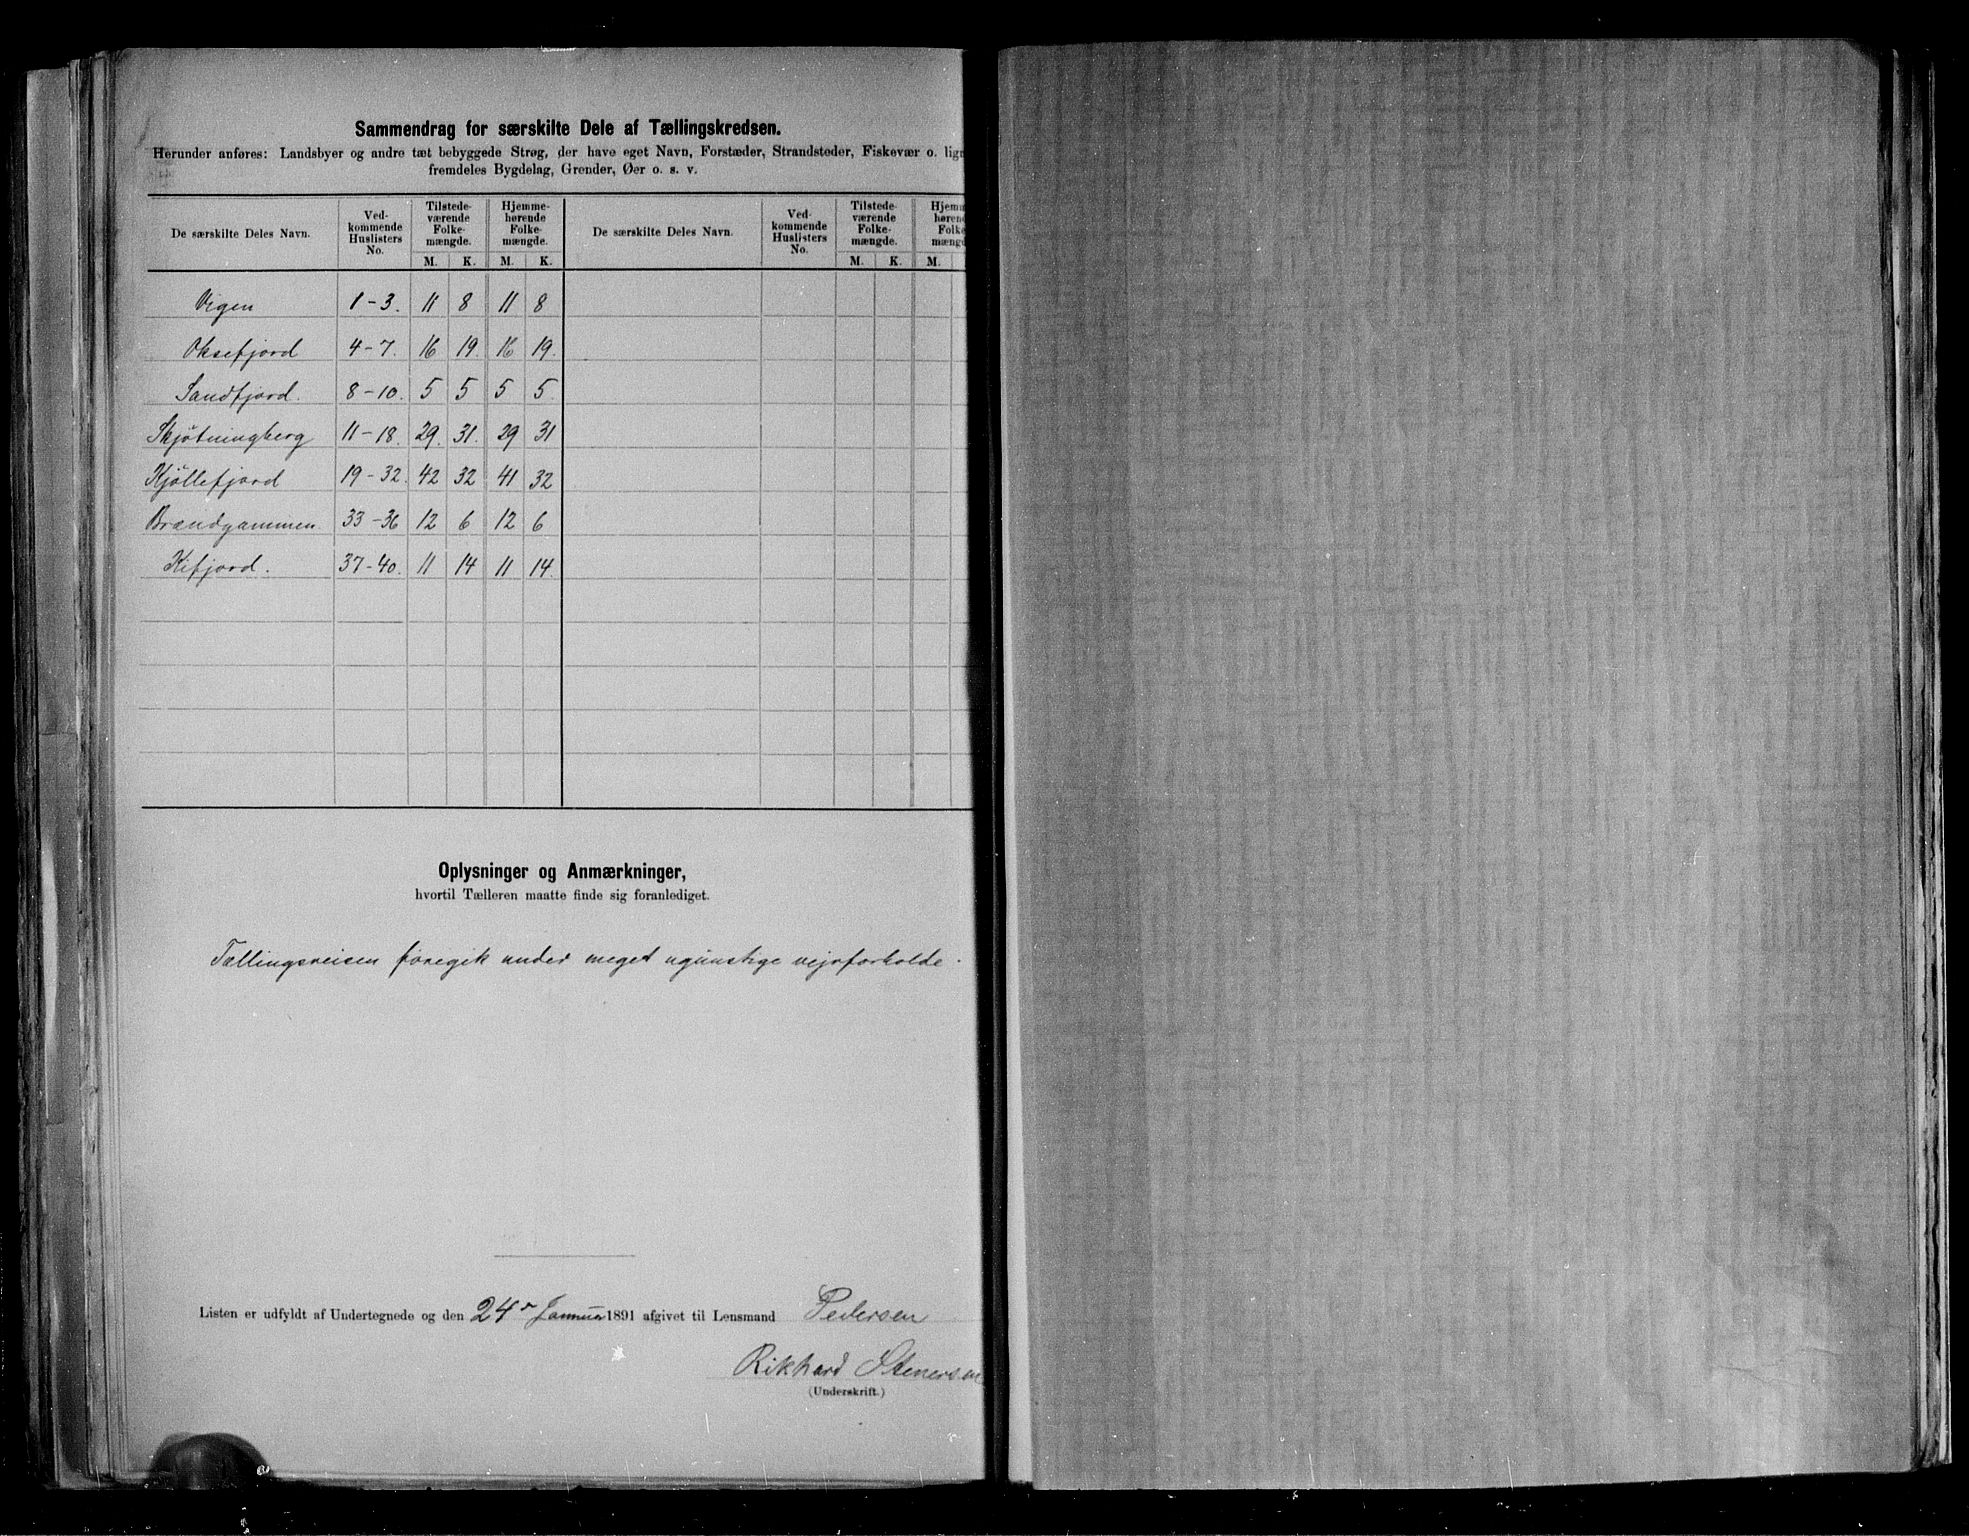 Sammendrag for særskilte Dele af Tællingskredsen.
Herunder anføres: Landsbyer og andre tæt bebyggede Strøg, der have eget Navn, Forstæder, Strandsteder, Fiskevær o. lign
fremdeles Bygdelag, Grender, Øer o. s. v.
De særskilte Deles Navn. Ved-kommende Huslisters No. Tilstede-værende Folke-mængde. Hjemme-hørende Folke-mængde. De særskilte Deles Navn. Ved-kommende Huslisters No. Tilstede-værende Folke-mængde. Hjemm hørend Folke mængd
M. K. M. K. M. K. M.
Vigen 1-3. 11 8 11 8
Oksefjord 4-7. 16 19. 16 19.
Sandfjord. 8-10. 5 5 5 5.
Skjötningberg 11-18. 29. 31. 29 31
Kjöllefjord 19-32. 42 32 41 32
Brændgammen 33-36 12 6 12 6
Kifjord. 37-40. 11 14 11 14.
Oplysninger og Anmærkninger,
hvortil Tælleren maatte finde sig foranlediget.
Tællingsreisen foregik under meget ugunstige vejrforholde.
Listen er udfyldt af Undertegnede og den 24r Januar 1891 afgivet til Lensmand Pedersen
Rikhard Stenersen
(Underskrift.)